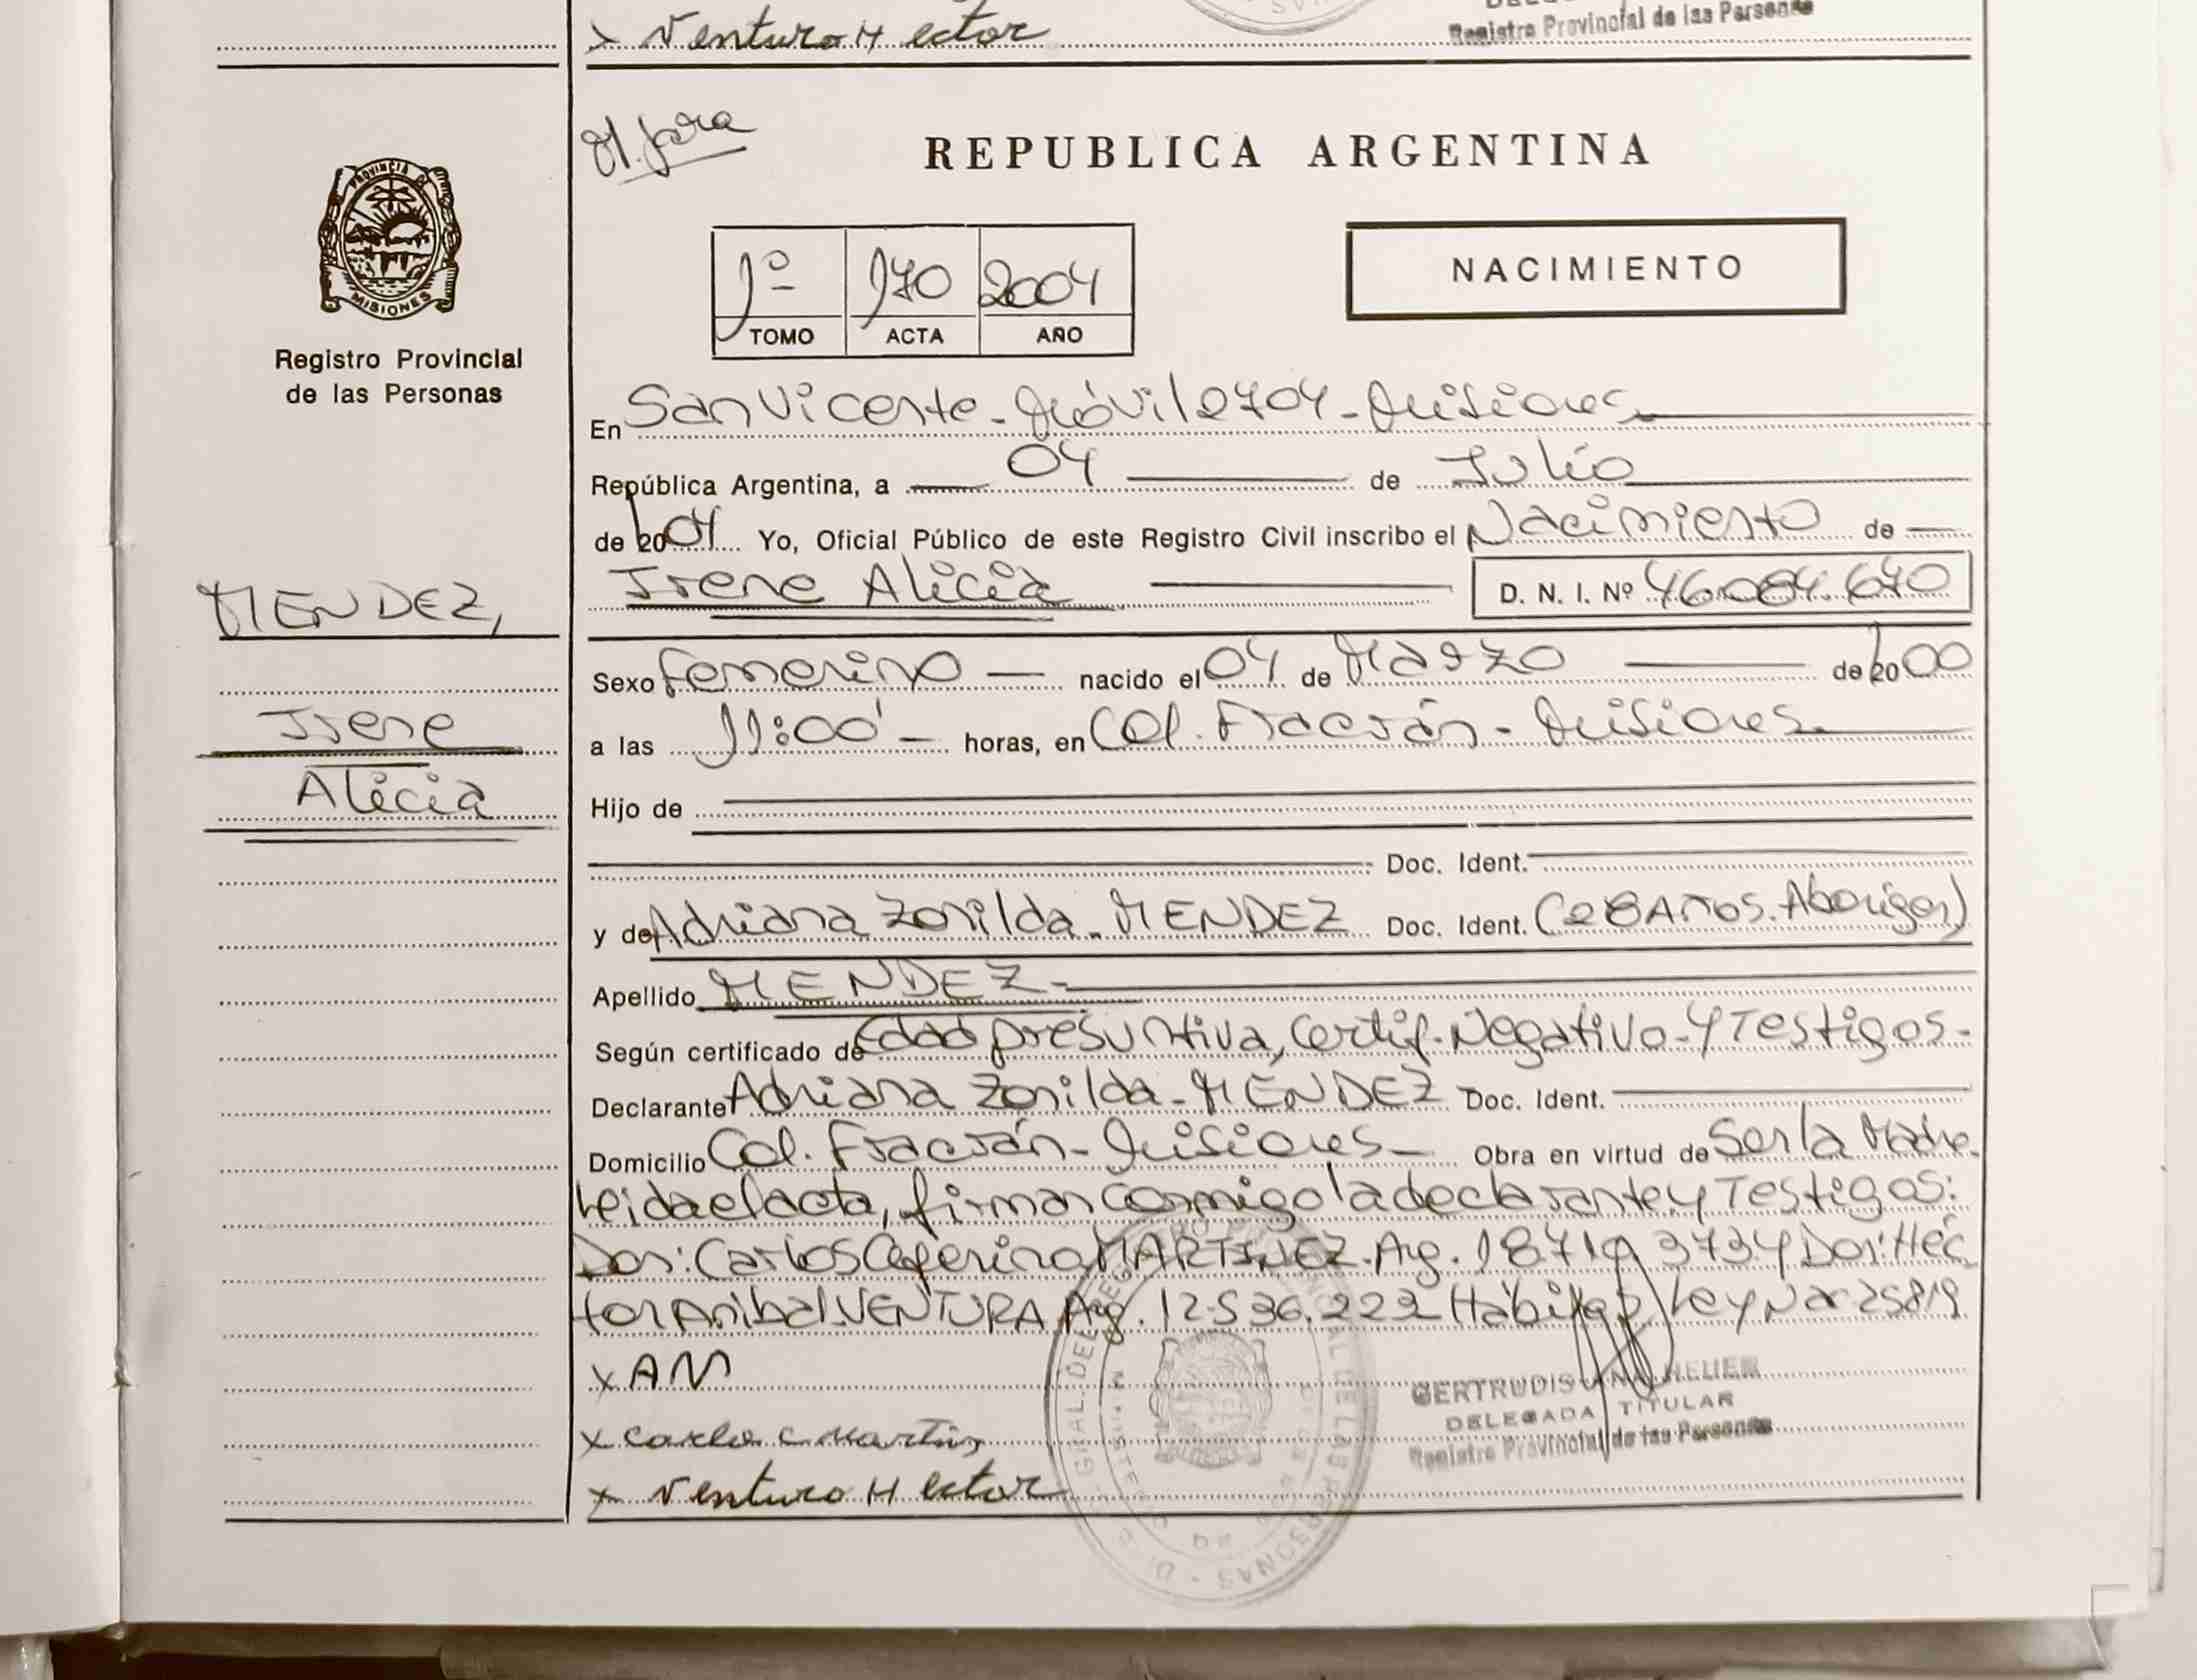 x Ventura Hector
Registro Provincial de las Personas
REPUBLICA ARGENTINA
PROVINCIA DE
MISIONES
Registro Provincial
de las Personas
1º 170 2004
TOMO ACTA AÑO
NACIMIENTO
En San Vicente - Móvil 2704 - Misiones
República Argentina, a 04 de Julio
de 2004 Yo, Oficial Público de este Registro Civil inscribo el Nacimiento de
Irene Alicia D. N. I. Nº 46.084.670
MENDEZ,
Irene
Alicia
Sexo Femenino nacido el 04 de Marzo de 2000
a las 11:00 horas, en Col. Fracrán - Misiones
Hijo de
Doc. Ident.
y de Adriana Zonilda - MENDEZ Doc. Ident. (28 Años. Aborigen)
Apellido MENDEZ -
Según certificado de Edad presuntiva, Certif. Negativo - Y Testigos -
Declarante Adriana Zonilda - MENDEZ Doc. Ident.
Domicilio Col. Fracrán - Misiones - Obra en virtud de Ser la Madre.
Leida el acta, firman conmigo la declarante y Testigos:
Don: Carlos Ceferino MARTINEZ. Arg. 18.719.373 y Don: Héc
tor Anibal VENTURA Arg. 12.536.222 Hábiles Ley Nar 25819
x AM
x Carlo C Martin
x Ventura Hector
GERTRUDIS ANA HELIER
DELEGADA TITULAR
Registro Provincial de las Personas